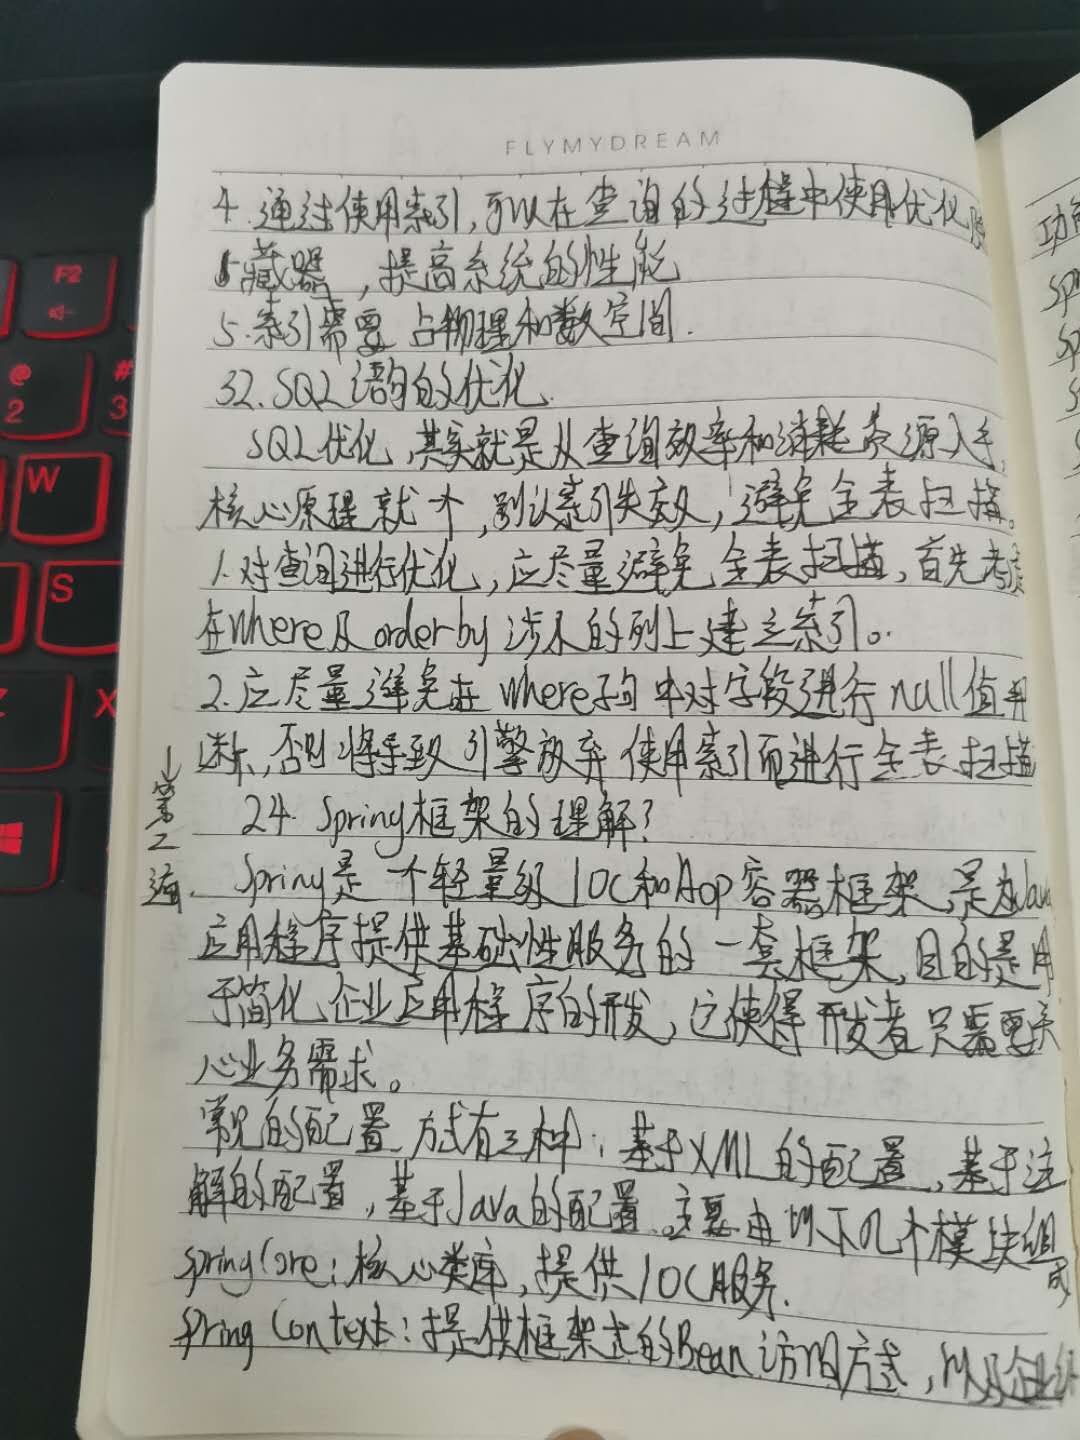 FLYMYDREAM
4.通过使用索引,可以在查询的过程中使用优化隐
藏器,提高系统的性能
5.索引需要占物理和数空间.
32.SQL语句的优化.
SQL优化,其实就是从查询效率和消耗资源入手,
核心原理就一个,别让索引失效,避免全表扫描。
1.对查询进行优化,应尽量避免全表扫描,首先考虑
在where及order by 涉及的列上建立索引。
2.应尽量避免在where子句中对字段进行null值判
断,否则将导致引擎放弃使用索引而进行全表扫描
24.Spring框架的理解?
↓第二遍.
Spring是一个轻量级IOC和Aop容器框架,是为Java
应用程序提供基础性服务的一套框架,目的是用
于简化企业应用程序的开发,它使得开发者只需要关
心业务需求。
常见的配置方式有三种:基于XML的配置,基于注
解的配置,基于Java的配置.主要由以下几个模块组成
Spring Core:核心类库,提供IOC服务.
Spring Context:提供框架式的Bean访问方式,以及企业级
功能
SP
SP
S
F2
@
2
#
3
W
S
Z
X